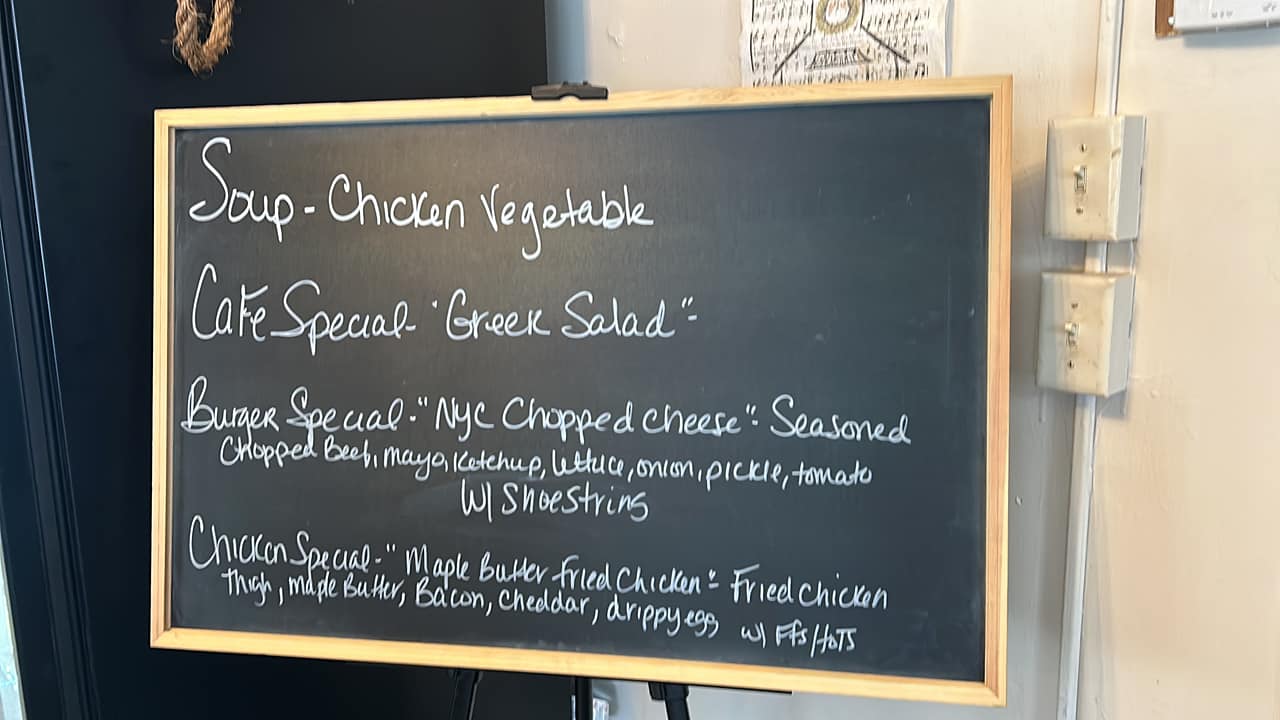 Soup - Chicken Vegetable
Cafe Special - "Greek Salad" -
Burger Special - "NYC Chopped Cheese" - Seasoned
Chopped Beef, mayo, ketchup, lettuce, onion, pickle, tomato
W/ Shoestrings
Chicken Special - "Maple Butter Fried Chicken" - Fried Chicken
Thigh, maple Butter, Bacon, Cheddar, drippy egg w/ FFs/ToTS